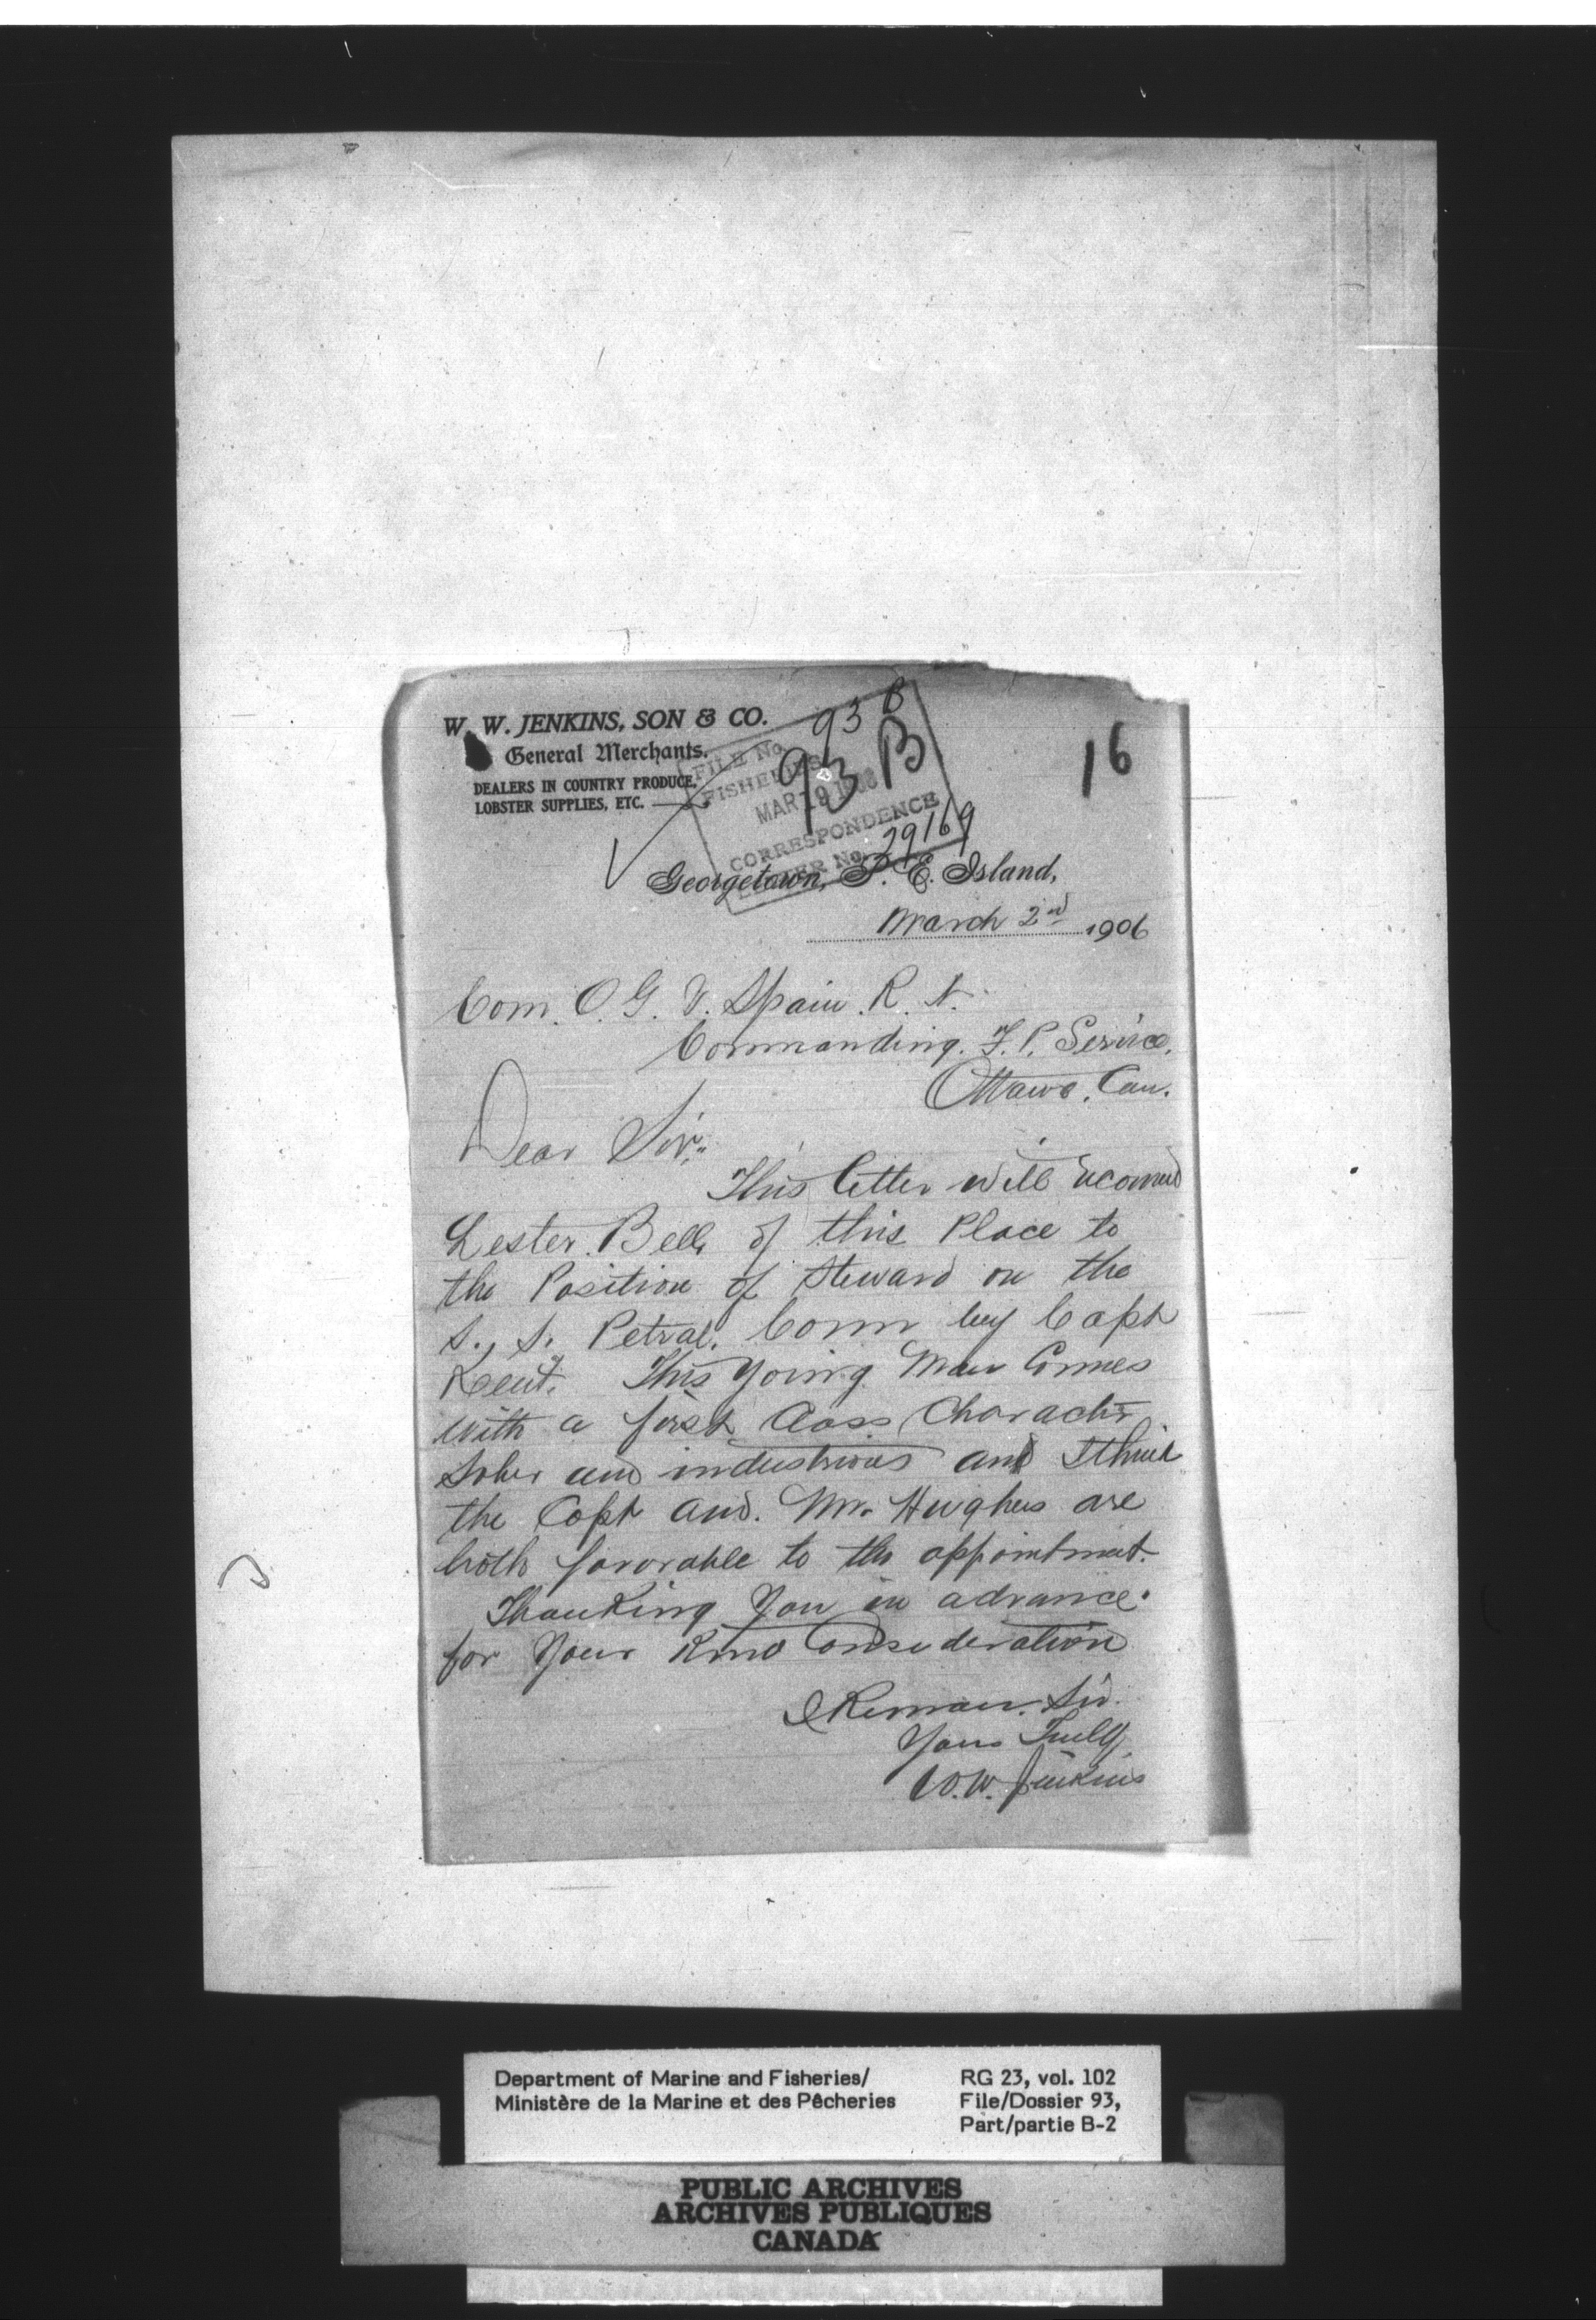 W. W. JENKINS, SON & CO.
General Merchants.
DEALERS IN COUNTRY PRODUCE,
LOBSTER SUPPLIES, ETC.
93 B
93 B
16
FILE No.
FISHERIES
MAR 19 1906
CORRESPONDENCE
LETTER No. 29169
Georgetown, P. E. Island,
March 2nd 1906
Com. O. G. V. Spain. R. N.
Commanding. F. P. Service.
Ottawa. Can.
Dear Sir:
This letter will recomend
Lester Bell of this Place to
the Position of Steward on the
S., S. Petral. Comm by Capt
Kent. This Young Man Comes
with a first Class Character
Sober and industrious and I think
the Capt and. Mr. Hughes are
both favorable to the appointment.
Thanking You in advance.
for Your Kind Consideration
I Remain. Sir.
Yours Truly
W. W. Jenkins
Department of Marine and Fisheries/
Ministère de la Marine et des Pêcheries
RG 23, vol. 102
File/Dossier 93,
Part/partie B-2
PUBLIC ARCHIVES
ARCHIVES PUBLIQUES
CANADA